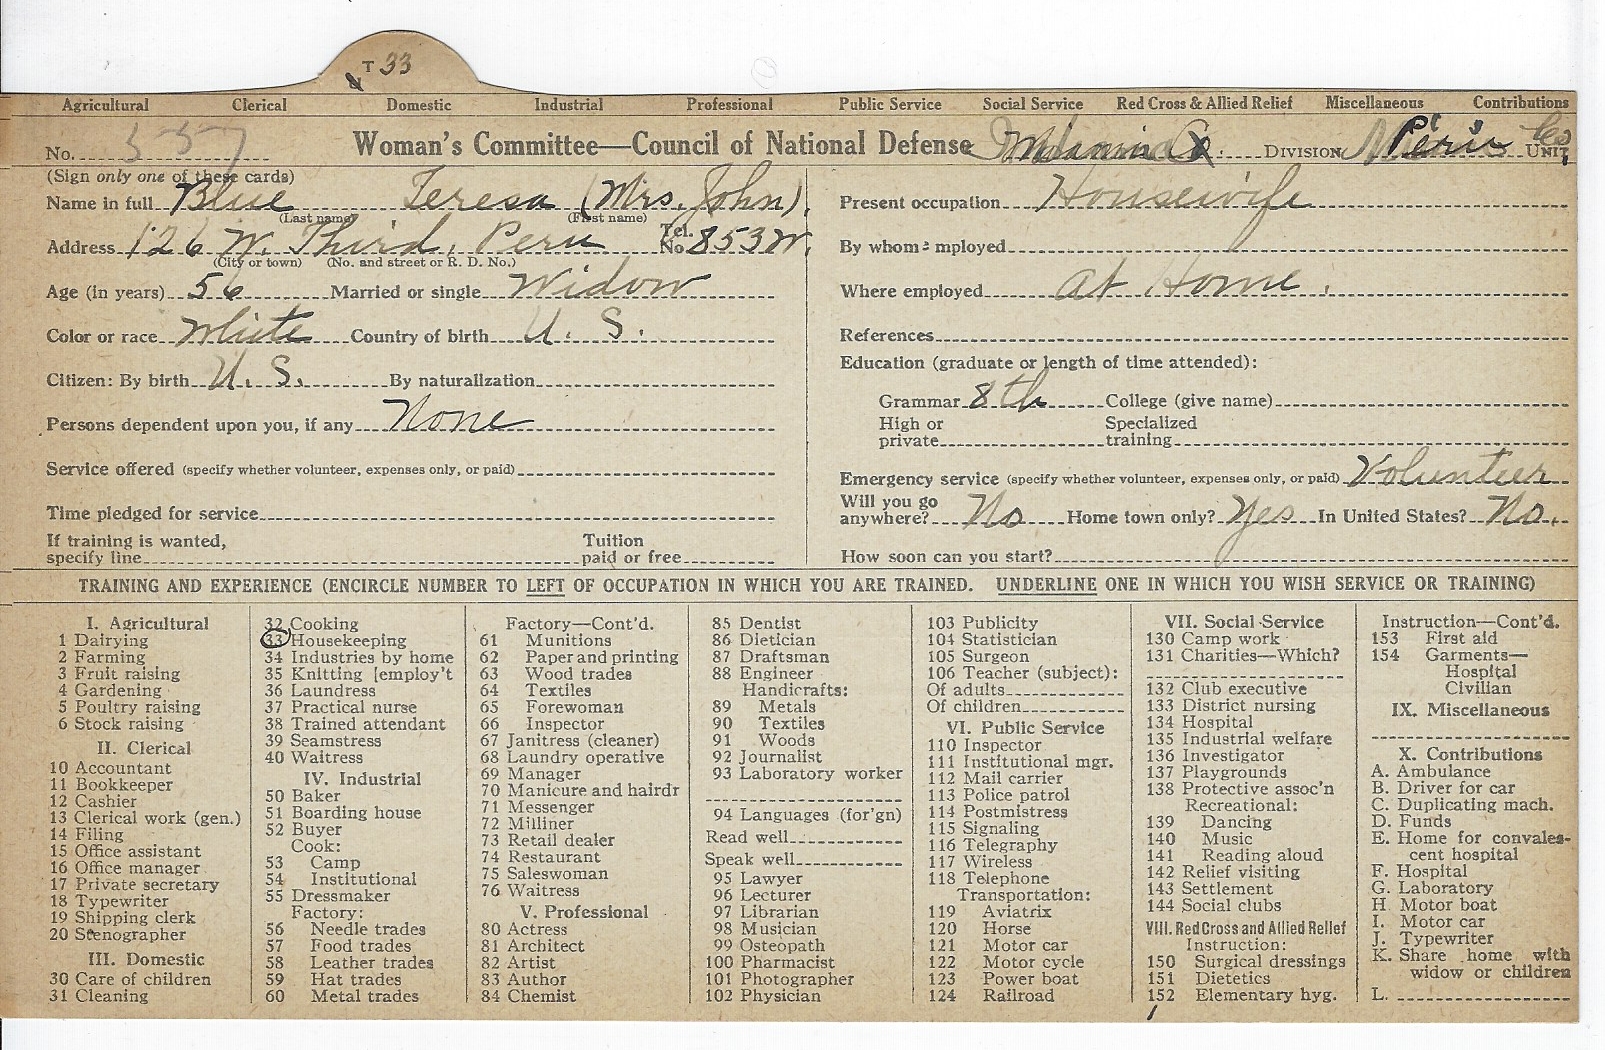 T 33
Agricultural Clerical Domestic Industrial Professional Public Service Social Service Red Cross & Allied Relief Miscellaneous Contributions
No. 557 Woman's Committee—Council of National Defense Miami Co. DIVISION Peru UNIT
(Sign only one of these cards)
Name in full Blue Teresa (Mrs. John).
(Last name) (First name)
Address 126 W. Third, Peru Tel. No. 853W.
(City or town) (No. and street or R. D. No.)
Age (in years) 56 Married or single Widow
Color or race White Country of birth U. S.
Citizen: By birth U. S. By naturalization
Persons dependent upon you, if any None
Service offered (specify whether volunteer, expenses only, or paid)
Time pledged for service
If training is wanted, specify line Tuition paid or free
Present occupation Housewife
By whom employed
Where employed at Home.
References
Education (graduate or length of time attended):
Grammar 8th College (give name)
High or private Specialized training
Emergency service (specify whether volunteer, expenses only, or paid) Volunteer
Will you go anywhere? No Home town only? Yes In United States? No.
How soon can you start?
TRAINING AND EXPERIENCE (ENCIRCLE NUMBER TO LEFT OF OCCUPATION IN WHICH YOU ARE TRAINED. UNDERLINE ONE IN WHICH YOU WISH SERVICE OR TRAINING)
I. Agricultural
1 Dairying
2 Farming
3 Fruit raising
4 Gardening
5 Poultry raising
6 Stock raising
II. Clerical
10 Accountant
11 Bookkeeper
12 Cashier
13 Clerical work (gen.)
14 Filing
15 Office assistant
16 Office manager
17 Private secretary
18 Typewriter
19 Shipping clerk
20 Stenographer
III. Domestic
30 Care of children
31 Cleaning
32 Cooking
33 Housekeeping
34 Industries by home
35 Knitting [employ't
36 Laundress
37 Practical nurse
38 Trained attendant
39 Seamstress
40 Waitress
IV. Industrial
50 Baker
51 Boarding house
52 Buyer
Cook:
53 Camp
54 Institutional
55 Dressmaker
Factory:
56 Needle trades
57 Food trades
58 Leather trades
59 Hat trades
60 Metal trades
Factory—Cont'd.
61 Munitions
62 Paper and printing
63 Wood trades
64 Textiles
65 Forewoman
66 Inspector
67 Janitress (cleaner)
68 Laundry operative
69 Manager
70 Manicure and hairdr
71 Messenger
72 Milliner
73 Retail dealer
74 Restaurant
75 Saleswoman
76 Waitress
V. Professional
80 Actress
81 Architect
82 Artist
83 Author
84 Chemist
85 Dentist
86 Dietician
87 Draftsman
88 Engineer
Handicrafts:
89 Metals
90 Textiles
91 Woods
92 Journalist
93 Laboratory worker
94 Languages (for'gn)
Read well
Speak well
95 Lawyer
96 Lecturer
97 Librarian
98 Musician
99 Osteopath
100 Pharmacist
101 Photographer
102 Physician
103 Publicity
104 Statistician
105 Surgeon
106 Teacher (subject):
Of adults
Of children
VI. Public Service
110 Inspector
111 Institutional mgr.
112 Mail carrier
113 Police patrol
114 Postmistress
115 Signaling
116 Telegraphy
117 Wireless
118 Telephone
Transportation:
119 Aviatrix
120 Horse
121 Motor car
122 Motor cycle
123 Power boat
124 Railroad
VII. Social Service
130 Camp work
131 Charities—Which?
132 Club executive
133 District nursing
134 Hospital
135 Industrial welfare
136 Investigator
137 Playgrounds
138 Protective assoc'n
Recreational:
139 Dancing
140 Music
141 Reading aloud
142 Relief visiting
143 Settlement
144 Social clubs
VIII. Red Cross and Allied Relief
Instruction:
150 Surgical dressings
151 Dietetics
152 Elementary hyg.
Instruction—Cont'd.
153 First aid
154 Garments—
Hospital
Civilian
IX. Miscellaneous
X. Contributions
A. Ambulance
B. Driver for car
C. Duplicating mach.
D. Funds
E. Home for convales-
cent hospital
F. Hospital
G. Laboratory
H. Motor boat
I. Motor car
J. Typewriter
K. Share home with
widow or children
L.